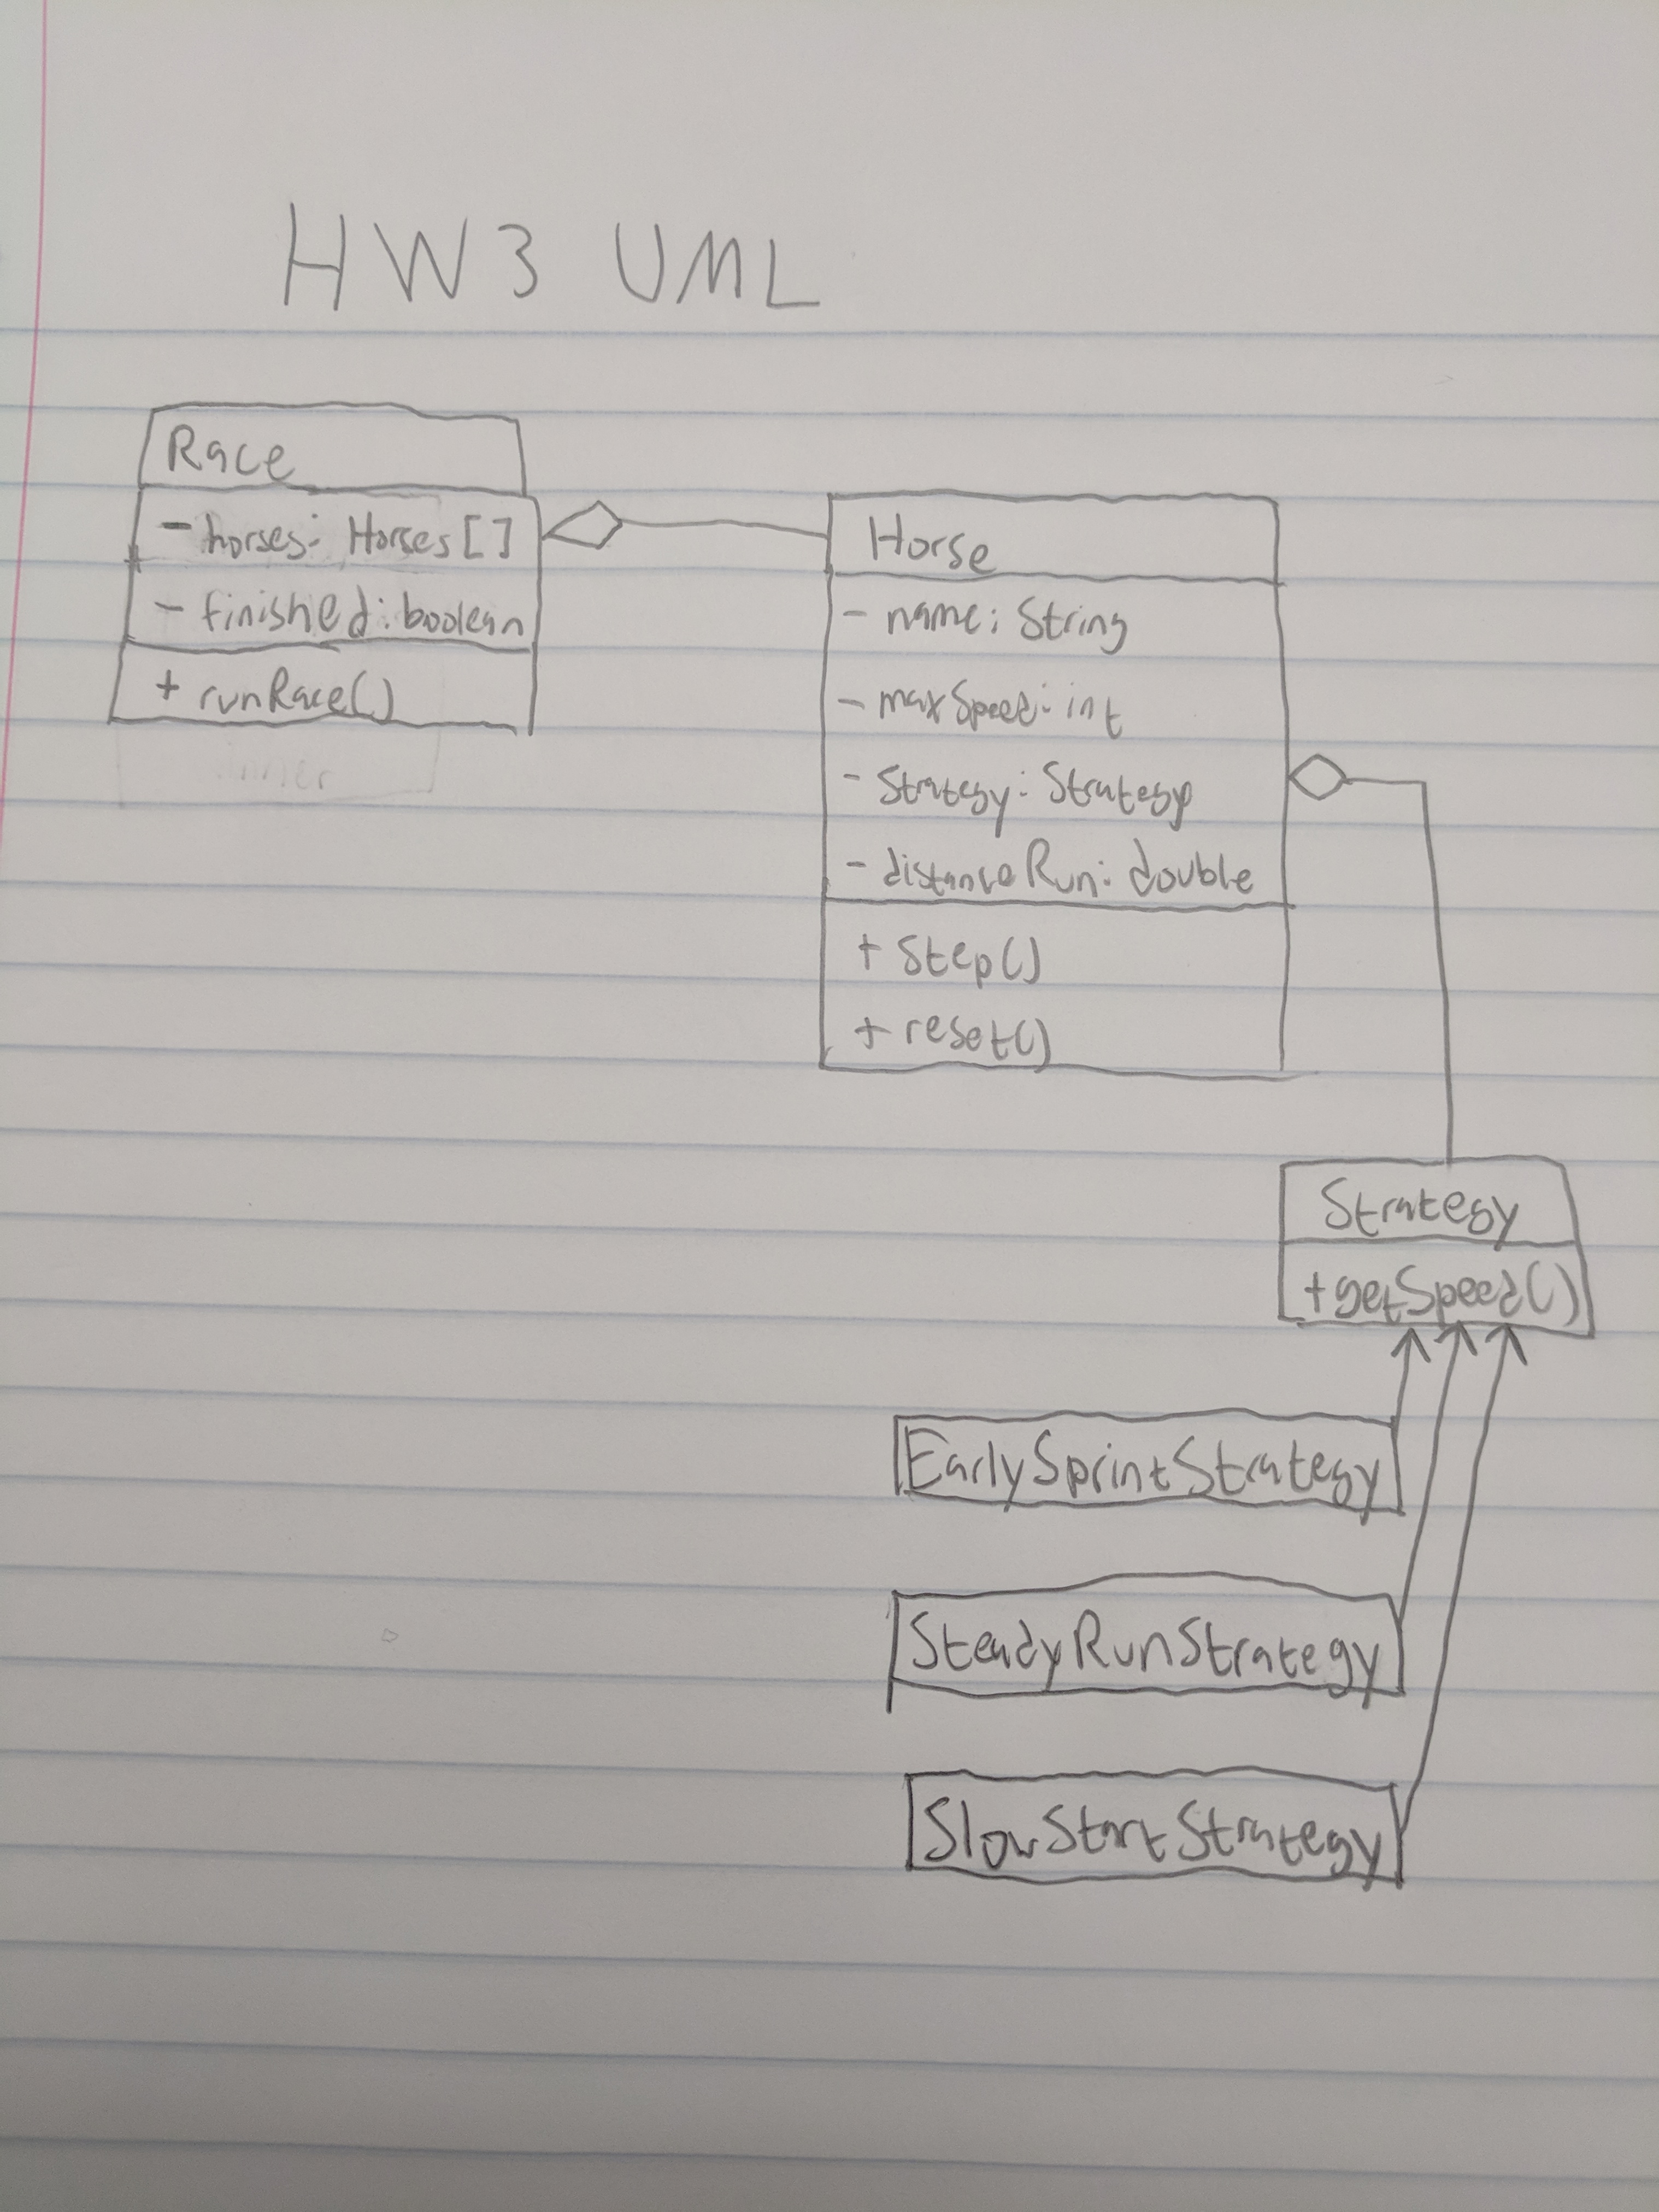 HW3 UML
Race
- horses: Horses[]
- finished: boolean
+ runRace()
Horse
- name: String
- maxSpeed: int
- Strategy: Strategy
- distanceRun: double
+ Step()
+ reset()
Strategy
+ getSpeed()
EarlySprintStrategy
SteadyRunStrategy
SlowStartStrategy